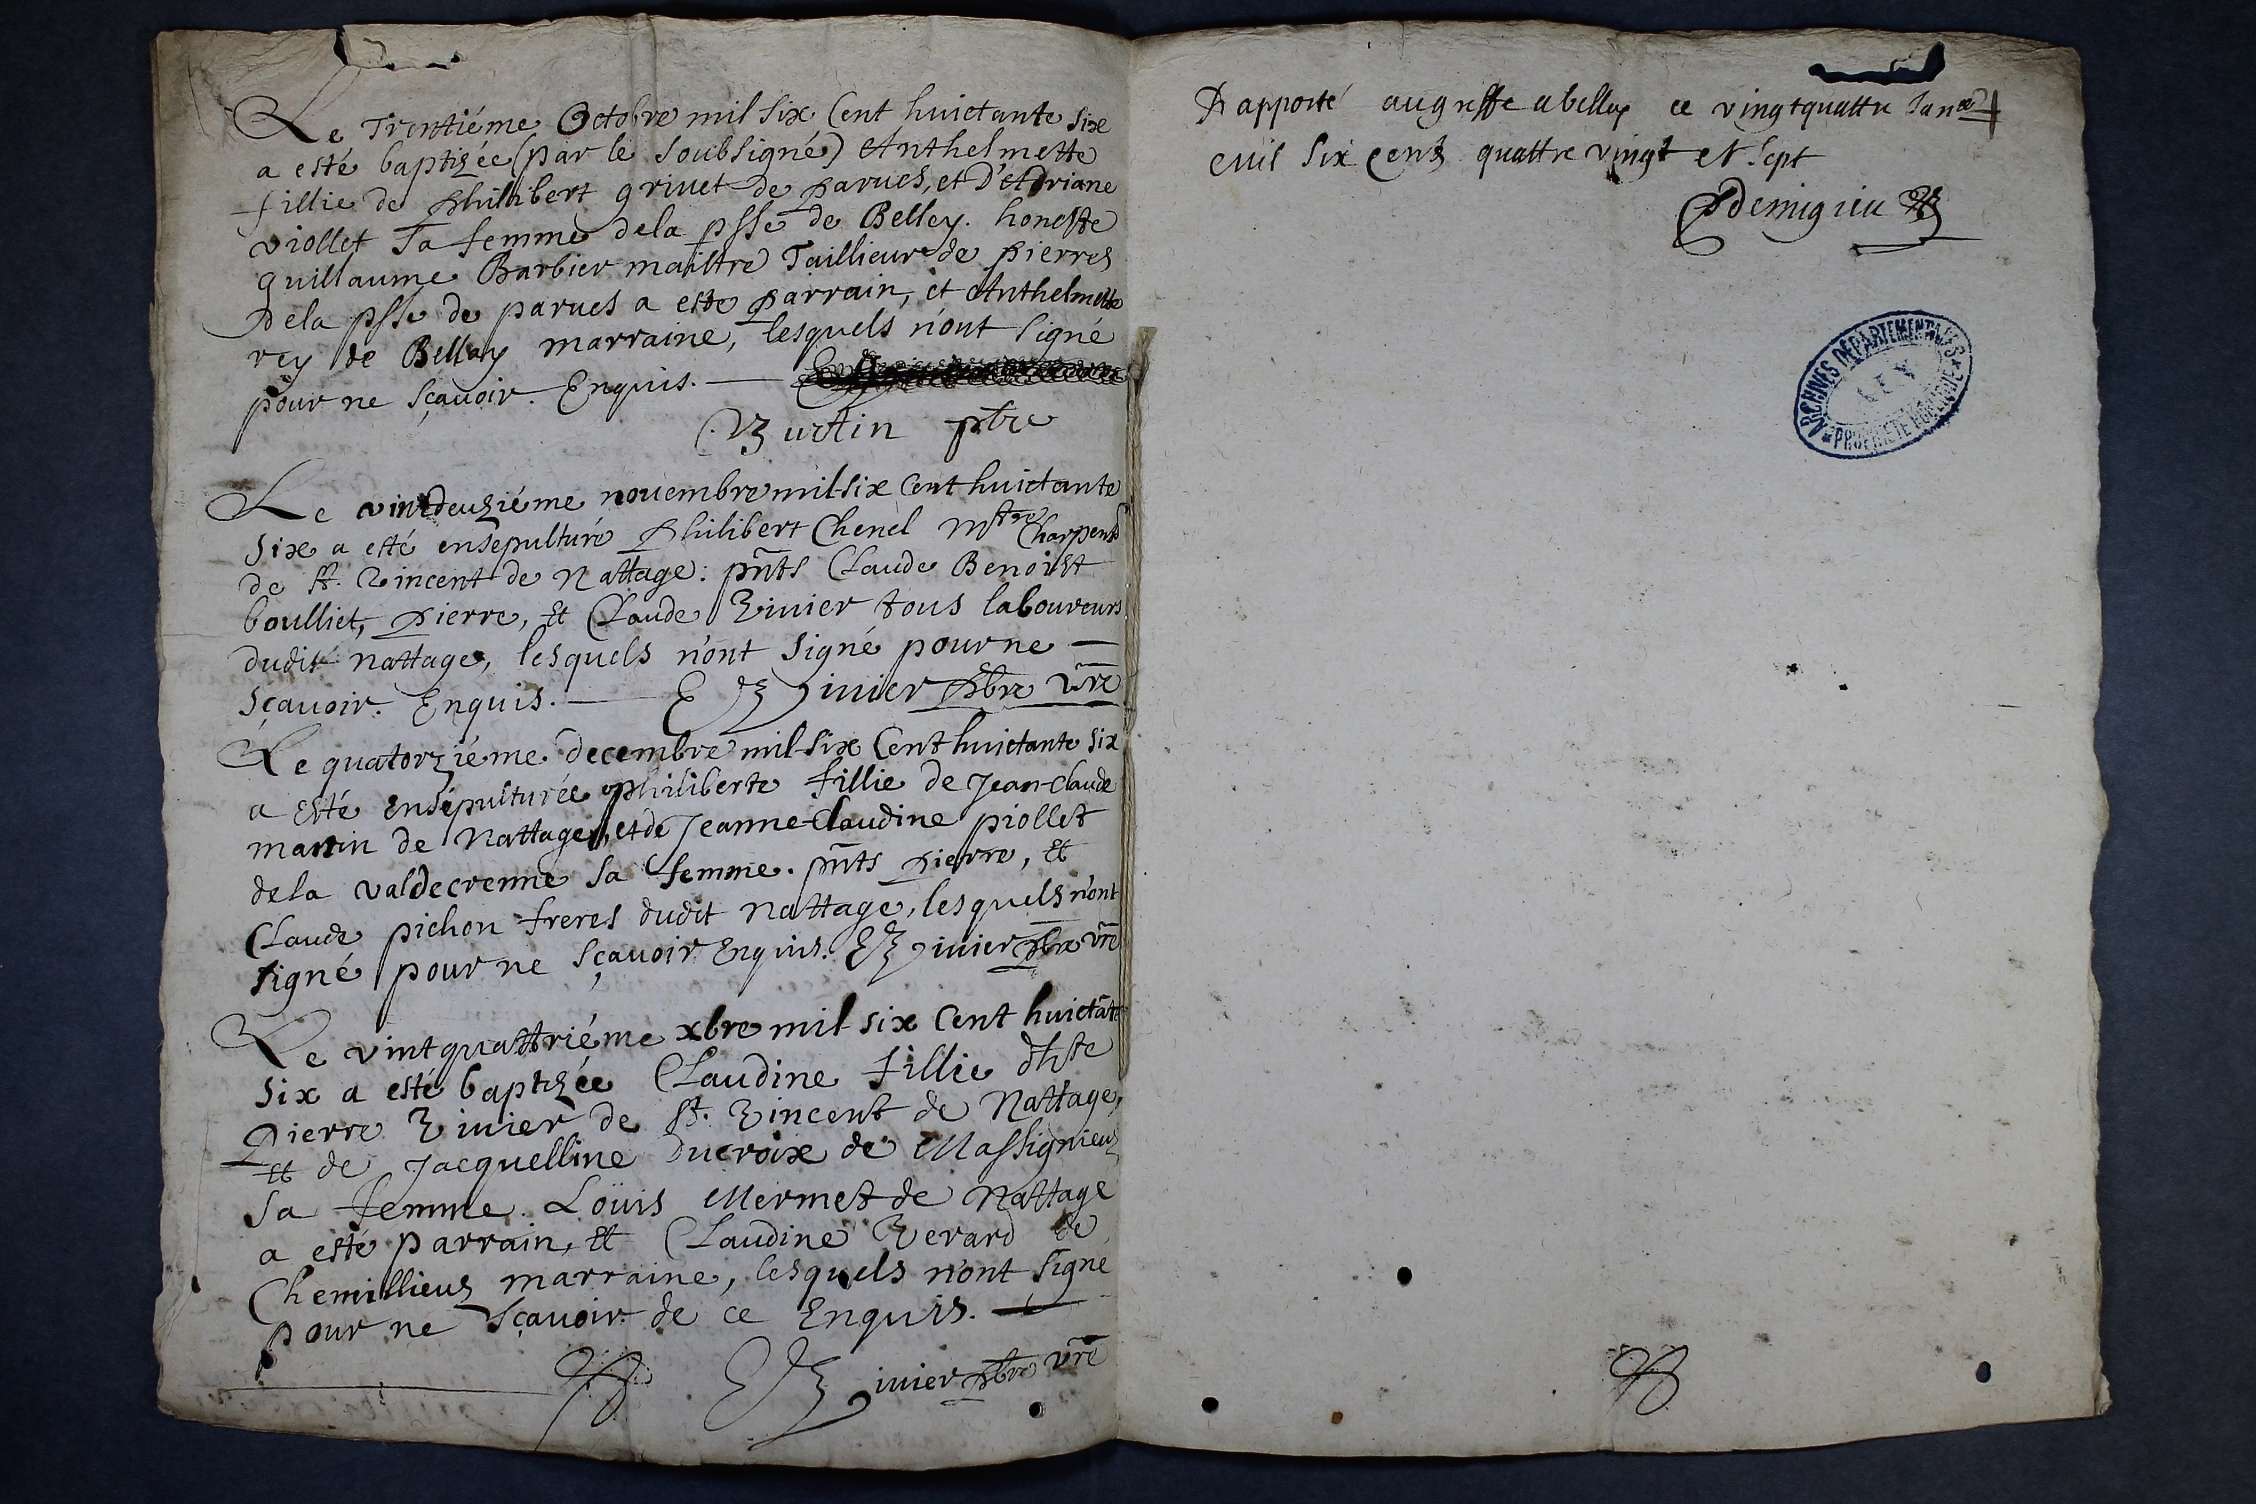 Le Trentiéme Octobre mil six Cent huictante six
a esté baptizée (par le soubsigné) Anthelmette
fillie de Philibert grivet de parves, et D'Adriane
viollet sa femme dela psse de Belley. honeste
guillaume Barbier maistre Taillieur de pierres
Dela psse de parves a esté parrain, et Anthelmette
rey de Belley marraine, lesquels n'ont signé
pour ne sçavoir. Enquis.
Burtin ptre
Le vintdeuziéme novembre mil six Cent huictante
six a esté ensepulturé Philibert Chenel Mstre Charpent
de st. Vincent de Nattage: pñts Claude Benoist
boulliet, Pierre, et Claude Vivier tous laboureurs
dudit nattage, lesquels n'ont signé pour ne
sçavoir. Enquis. Vivier pbre vre
Le quatorziéme decembre mil six Cent huictante six
a esté ensépulturée philiberte fillie de Jean-Claude
martin de Nattage, et de Jeanne-Claudine piollet
dela valdecrenne sa femme. pñts Pierre, et
Claude pichon freres dudit Nattage, lesquels n'ont
signé pour ne sçavoir Enquis. Vivier pbre vre
Le vintquattriéme xbre mil six Cent huictãte
six a esté baptizée Claudine fillie d'hste
Pierre Vivier de st. Vincent de Nattage,
et de Jacquelline Ducroix de Massignieuz
sa femme. Loüis Mermet de Nattage
a esté parrain, et Claudine Verard de
Chemillieuz marraine, lesquels n'ont signé
pour ne sçavoir de ce Enquis.
Vivier pbre vre
Rapporté au greffe a belley ce vingtquattre Janer
mil six cent quattre vingt et sept
Demigieu
ARCHIVES DÉPARTEMENTALES
AIN
PROPRIÉTÉ PUBLIQUE